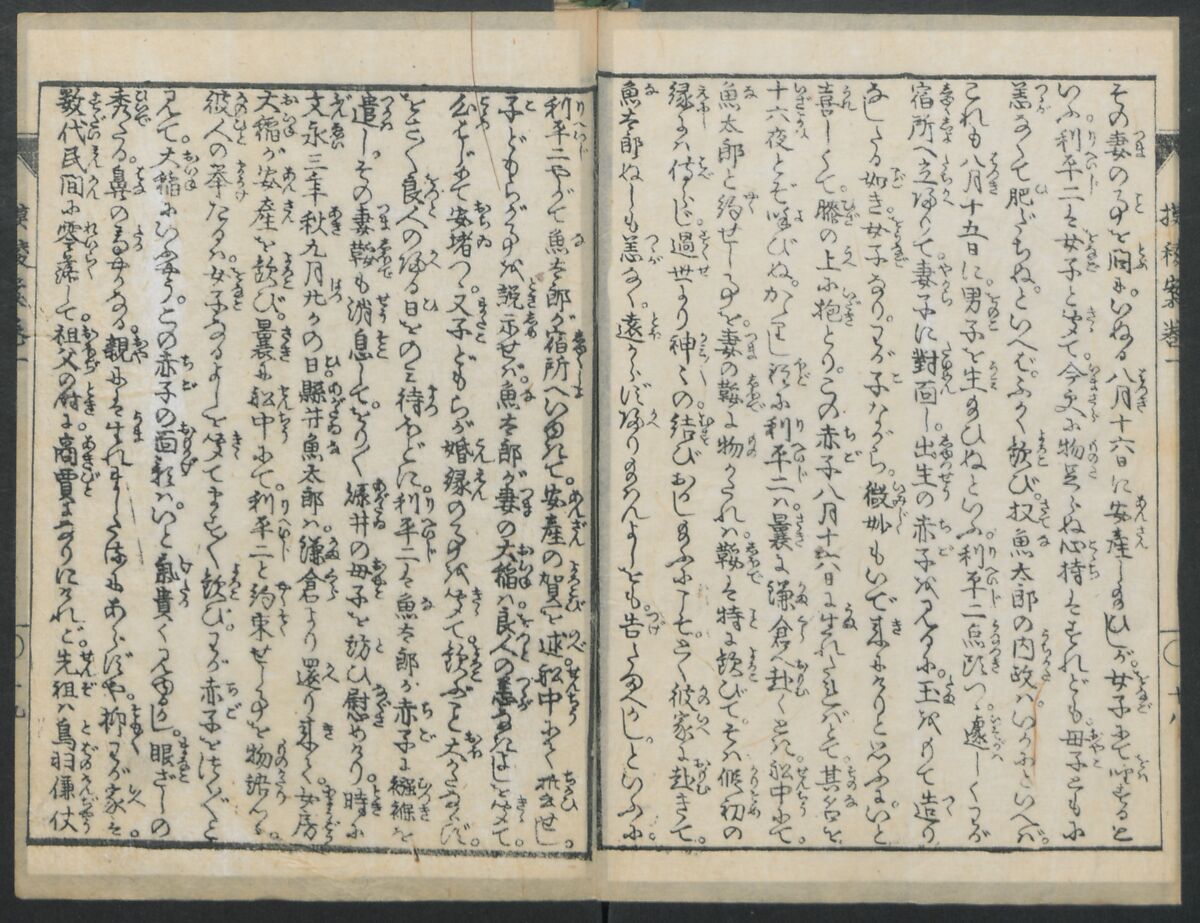 摸稜案巻一
〇十八
その妻の事を問に。いぬる八月十六日に安産し給ひしが。女子にて候と
いふ。利平二は女子と聞て。今更に物足らぬ心持はすれども。母子ともに
恙なくて肥だちぬ。といへばふかく歓び。扨魚太郎の内政は。いかにといへば
これも八月十五日に。男子を生給ひぬといふ。利平二点頭つゝ。遽しくわが
宿所へ立帰りて。妻子に對面し。出生の赤子を見るに。玉をもて造り
なしたる如き女子なり。わが子ながら。微妙もいで来にけりと思ふに。いと
喜しくて。膝の上に抱とり。この赤子八月十六日に生れたればとて。其名を
十六夜とぞ呼びぬ。かくて利平二は曩に鎌倉へ赴くとき。船中にて
魚太郎と約せし事を。妻の鞆に物がたれば。鞆は特に歓びて。そは假初の
縁には侍らじ。過世より神々の結びおかし給ふにこそ。とく彼家に赴きて。
魚太郎ぬしも恙なく。遠からず帰り給はんよしをも告給へかし。といふに
利平二やがて魚太郎が宿所へいゆきて。安産の賀を述。船中にて契なせし。
子どもらが事を説示せば。魚太郎が妻の大稲は。良人の恙なきよしを聞て
はじめて安堵つ。又子どもらが婚縁の事を聞て。歓ぶこと大かたならず。
とにかく良人の帰る日をのみ待ほどに。利平二は魚太郎が赤子に襁褓を
遣し。その妻鞆も消息して。をり〳〵縣井の母子を訪ひ慰めけり。時に
文永三年秋九月廿日の日。縣井魚太郎は鎌倉より還り来て。女房
大稲が安産を歓び。曩に船中にて。利平二と約束せし事を物語るに。
彼人の挙たるは女子なるよしを聞て。ます〳〵歓び。わが赤子をつら〳〵と
見て。大稲にいふやう。この赤子の面影は。いと氣貴く見ゆかし。眼ざしの
秀たる。鼻の高やかなる。親には生れましたるにもあらずや。抑わが家は
数代民間に零落して。祖父の時に商賈となりにけれど。先祖は鳥羽傔仗
摸稜案巻一
〇十九